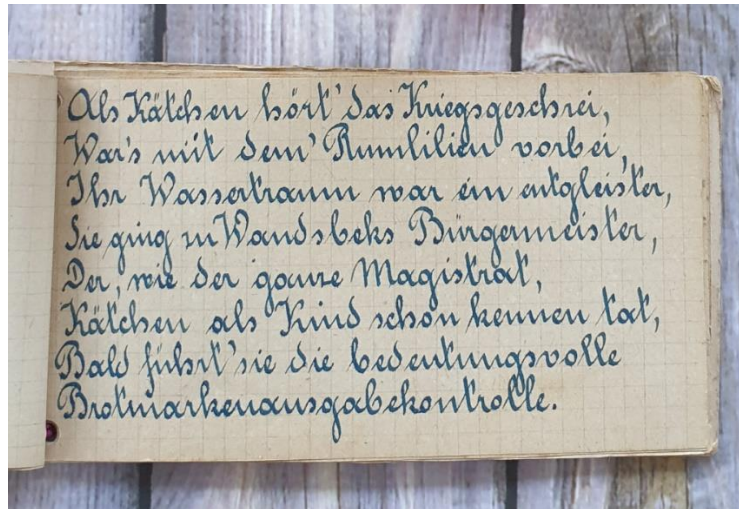 Als Kätchen hört' das Kriegsgeschrei,
War's mit dem' Rumlilien vorbei,
Ihr Wassertraum war ein entgleister,
Sie ging zu Wandsbeks Bürgermeister,
Der, wie der ganze Magistrat,
Kätchen als Kind schon kennen tat,
Bald führt' sie die bedeutungsvolle
Brotmarkenausgabekontrolle.